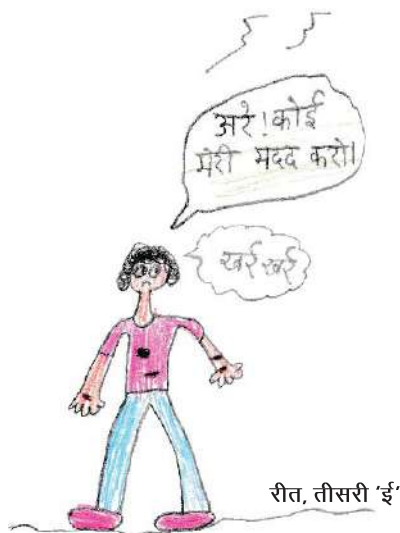 अरे! कोई
मेरी मदद करो।
खई खई
रीत, तीसरी 'ई'